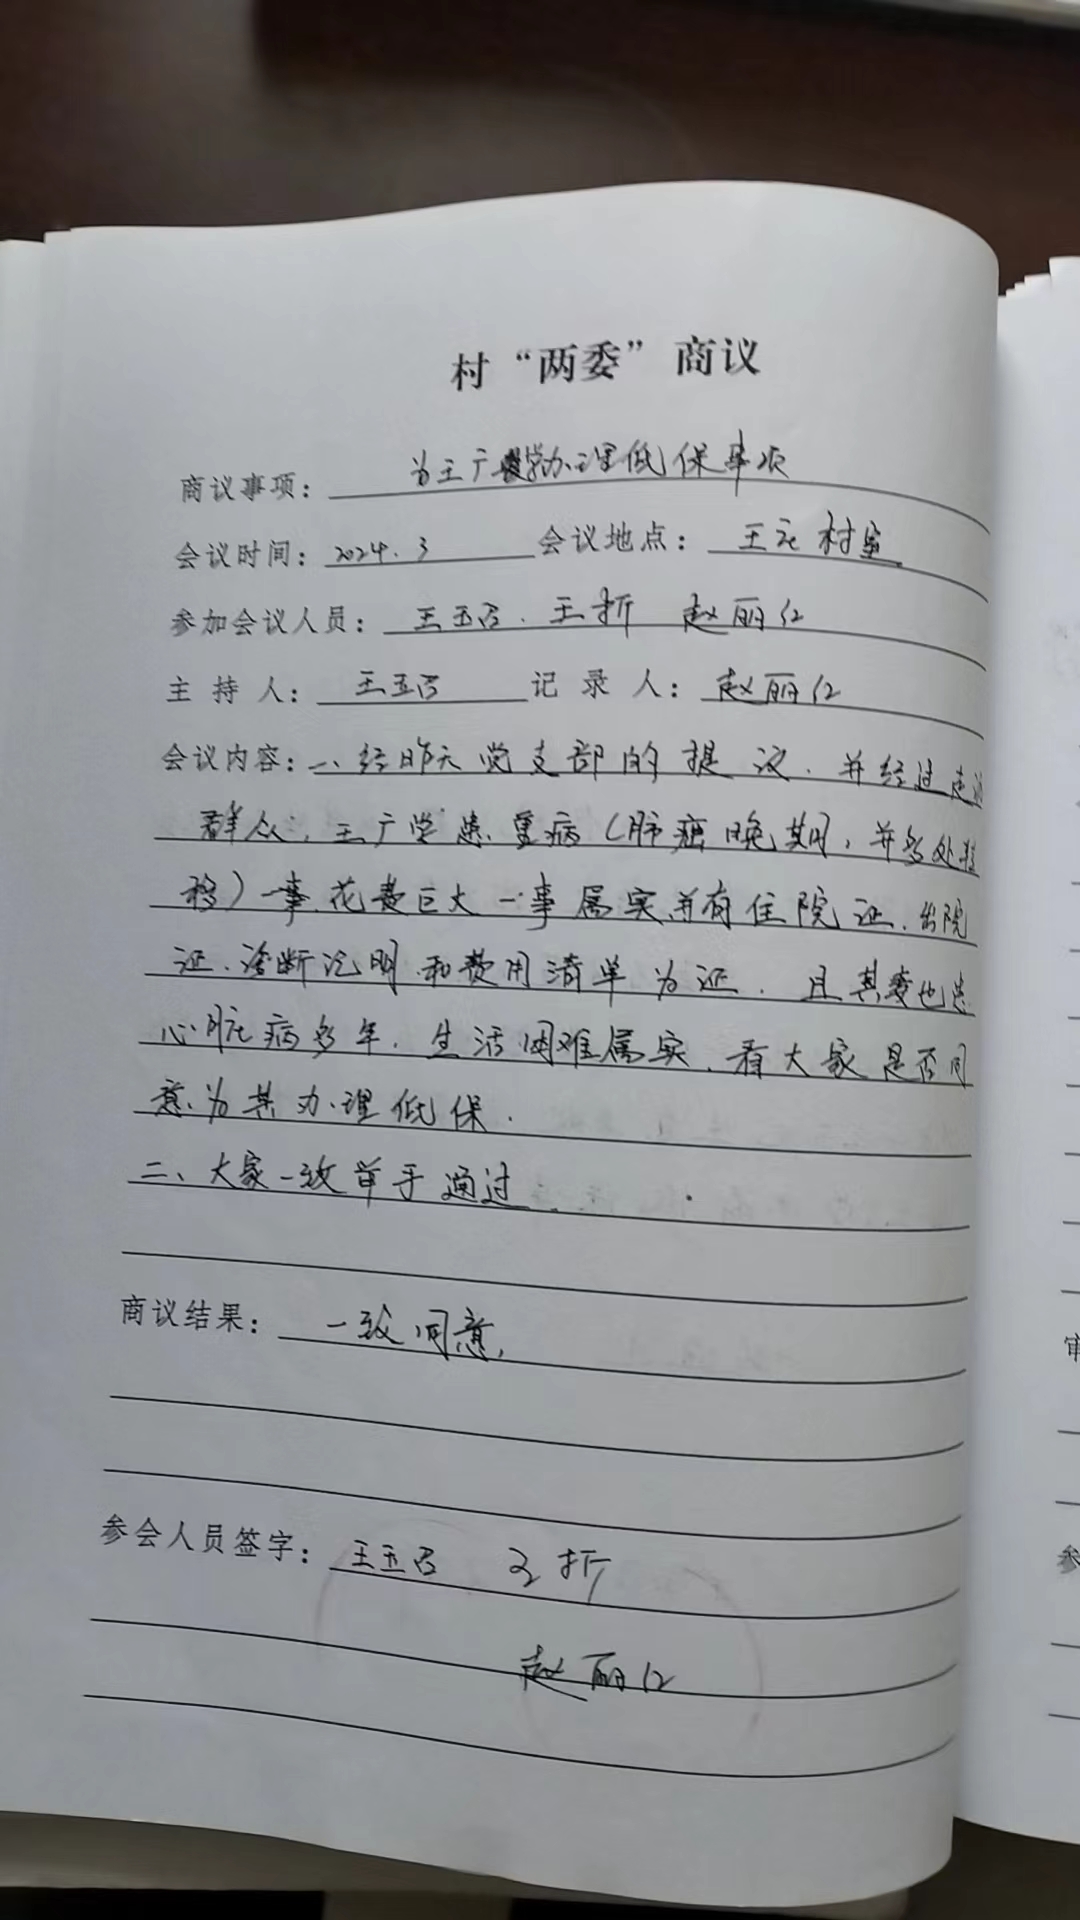 村“两委”商议
商议事项： 为王广学办理低保事项
会议时间： 2024.3 会议地点： 王元村室
参加会议人员： 王玉召、王折 赵丽红
主持人： 王玉召 记录人： 赵丽红
会议内容：一、经昨天党支部的提议、并经过走访
群众，王广学患重病（肺癌晚期，并多处转
移）一事、花费巨大一事属实并有住院证、出院
证、诊断证明、和费用清单为证． 且其妻也患
心脏病多年．生活困难属实、看大家是否同
意为其办理低保．
二、大家一致举手通过．
商议结果： 一致同意，
参会人员签字： 王玉召 王折
赵丽红
审
参